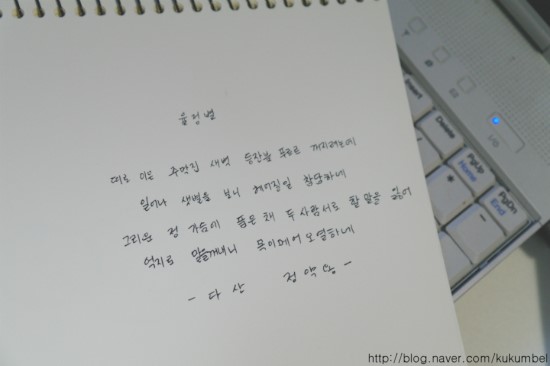 율정별
띠로 이은 주막집 새벽 등잔불 푸르르 꺼지려는데
일어나 샛별을 보니 헤어질일 참담하네
그리운 정 가슴에 품은 채 두 사람서로 할 말을 잃어
억지로 말을꺼내니 목이메어 오열하네
- 다산 정약용 -
Insert
Delete
PgUp
Home
PgDn
End
http://blog.naver.com/kukumbel